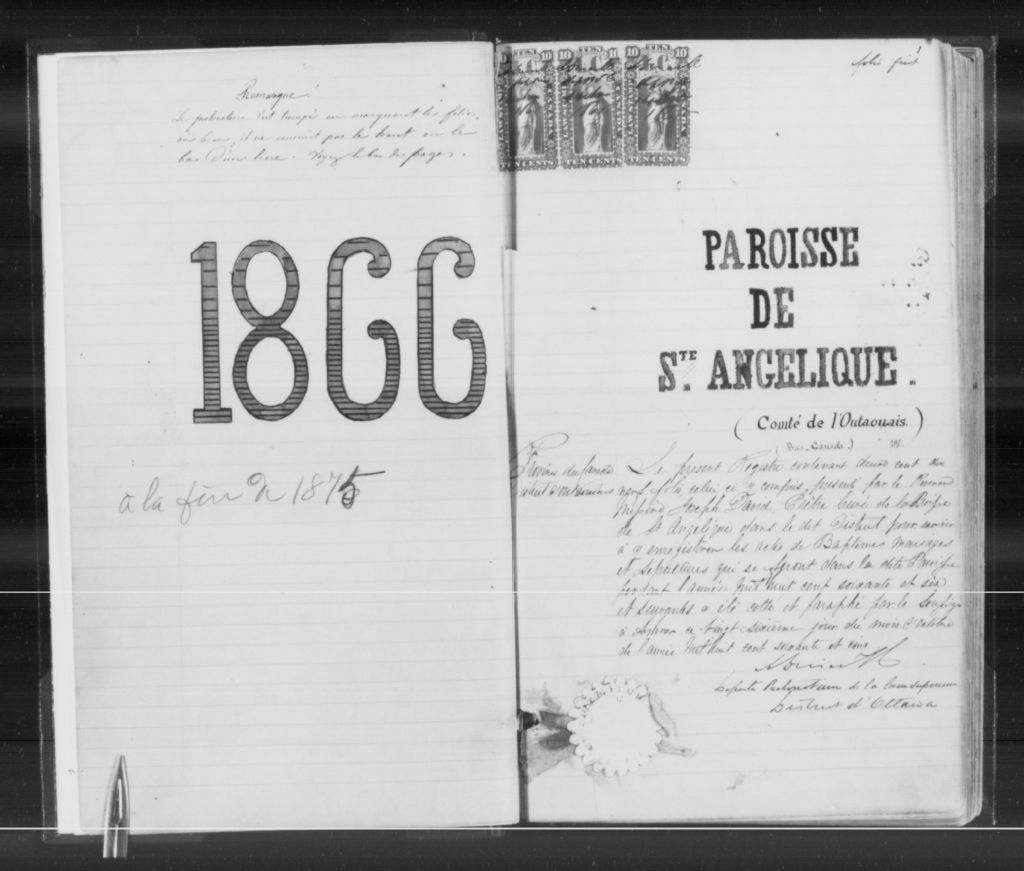 Remarque!
Le protonotaire s'est trompé en marquant les folios,
ou bien, il ne connait pas le haut ou le
bas d'un livre. Voyez le bas des pages.
1866
à la fin 1875
TEN 10
TEN CENTS
10 TEN 10
TEN CENTS
10 TEN 10
TEN CENTS
PAROISSE
DE
STE. ANGELIQUE.
(Comté de l'Outaouais.)
(Bas-Canada.)
Province du Canada
District d'Outaouais
Le present Registre contenant deux cent dix
neuf folios celui ci y compris, presenté par le Reverend
Messire Joseph David, Prêtre Curé de la Paroisse
de Ste Angelique dans le dit District pour servir
à y enregistrer les actes de Baptêmes Mariages
et Sepultures qui se feront dans la dite Paroisse
pendant l'année mil huit cent soixante et six
et suivantes a été cotté et paraphé par le Soussigné
à Aylmer ce vingt sixieme jour du mois d'Octobre
de l'année mil huit cent soixante et cinq
Deputé Protonotaire de la Cour Superieure
District d'Ottawa